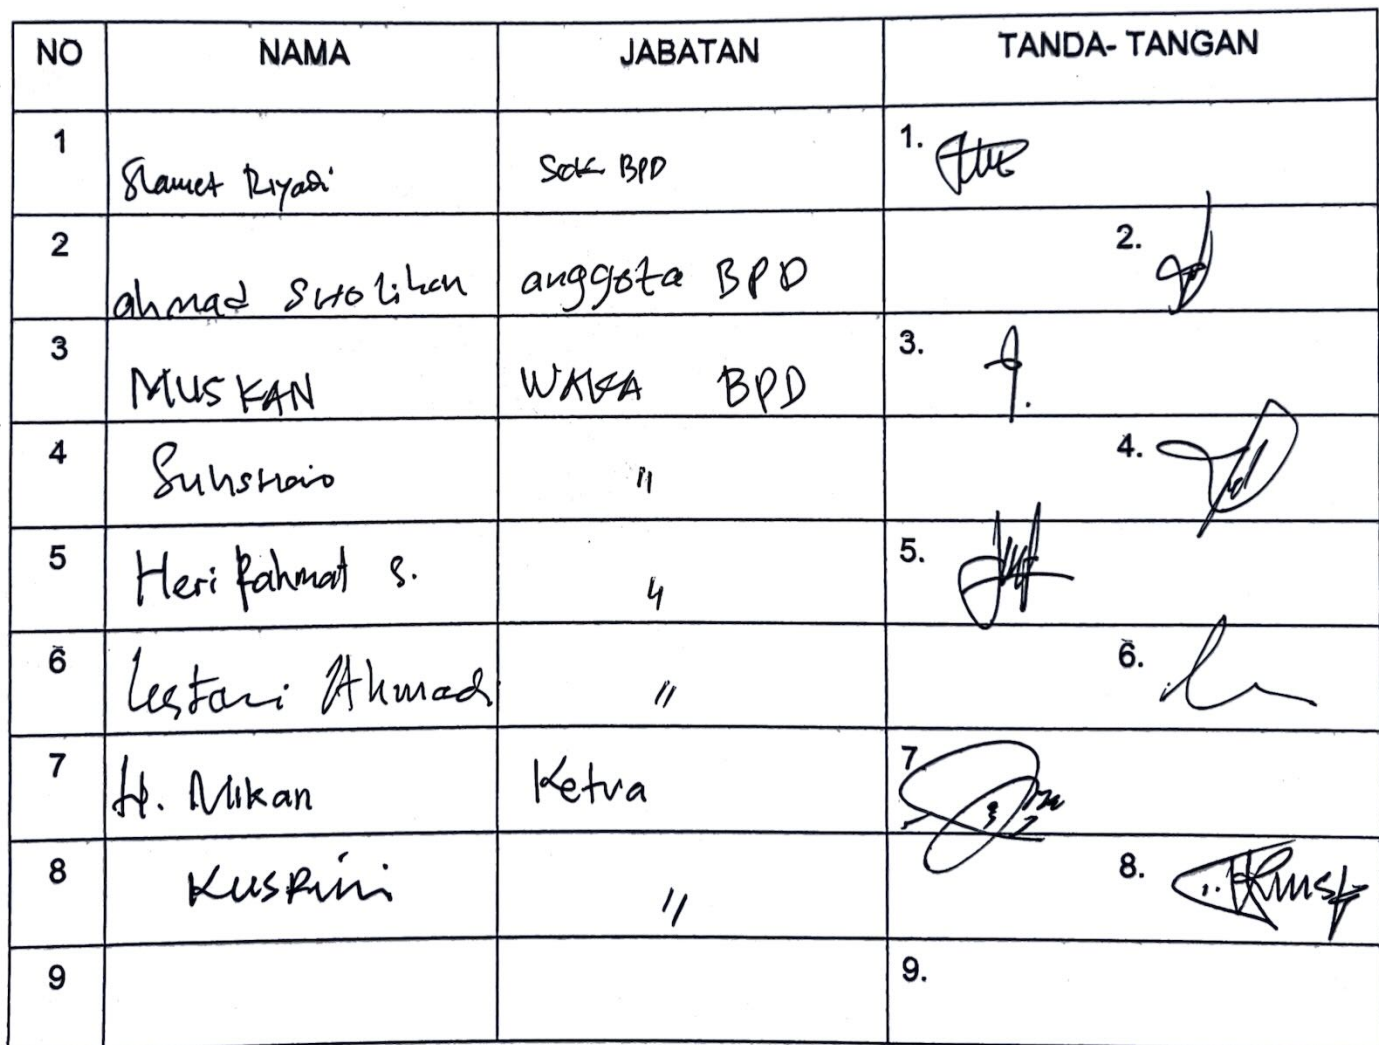 NO NAMA JABATAN TANDA- TANGAN
1 Slamet Riyadi Sek BPD 1.
2 ahmad Sholikan anggota BPD 2.
3 MUSKAN WAKA BPD 3.
4 " 4.
5 Heri Rahmat S. " 5.
6 Lestari Ahmadi " 6.
7 H. Mikan Ketua 7
8 KUSRini " 8.
9 9.